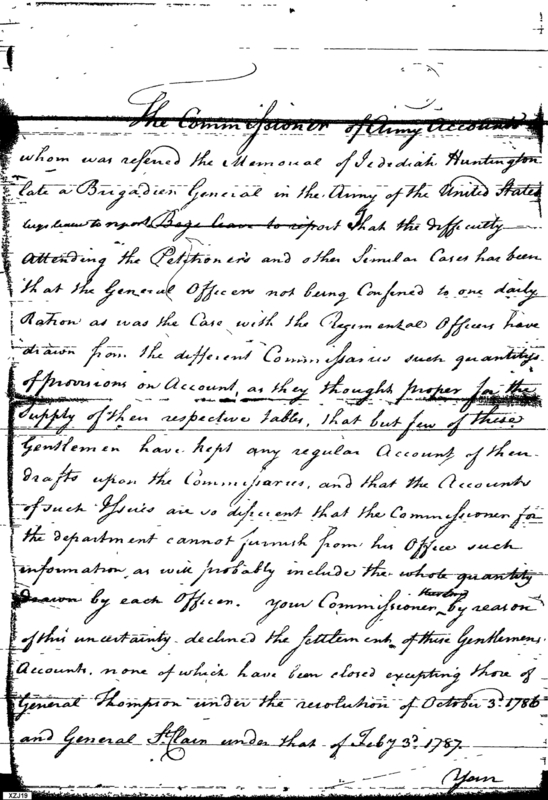 The Commissioner of Army Accounts
whom was referred the Memorial of Jedediah Huntington
late a Brigadier General in the Army of the United States
begs leave to report Begs leave to report That the difficulty
attending the Petitioners and other Similar Cases has been
that the General Officers not being Confined to one daily
Ration as was the Case with the Regimental Officers have
drawn from the different Commissaries such quantitys
of provisions on Account, as they thought proper for the
Supply of their respective tables, that but few of these
Gentlemen have kept any regular Account of their
drafts upon the Commissaries, and that the Accounts
of such Issues are so deficient that the Commissioner for
the department cannot furnish from his Office such
information as will probably include the whole quantity
drawn by each Officer. Your Commissioner by reason
of this uncertainty declined the settlement of these Gentlemens
Accounts. none of which have been closed excepting those of
General Thompson under the resolution of October 3d. 1786
and General St. Clair under that of Feby 3d. 1787.
Your
XZJ19